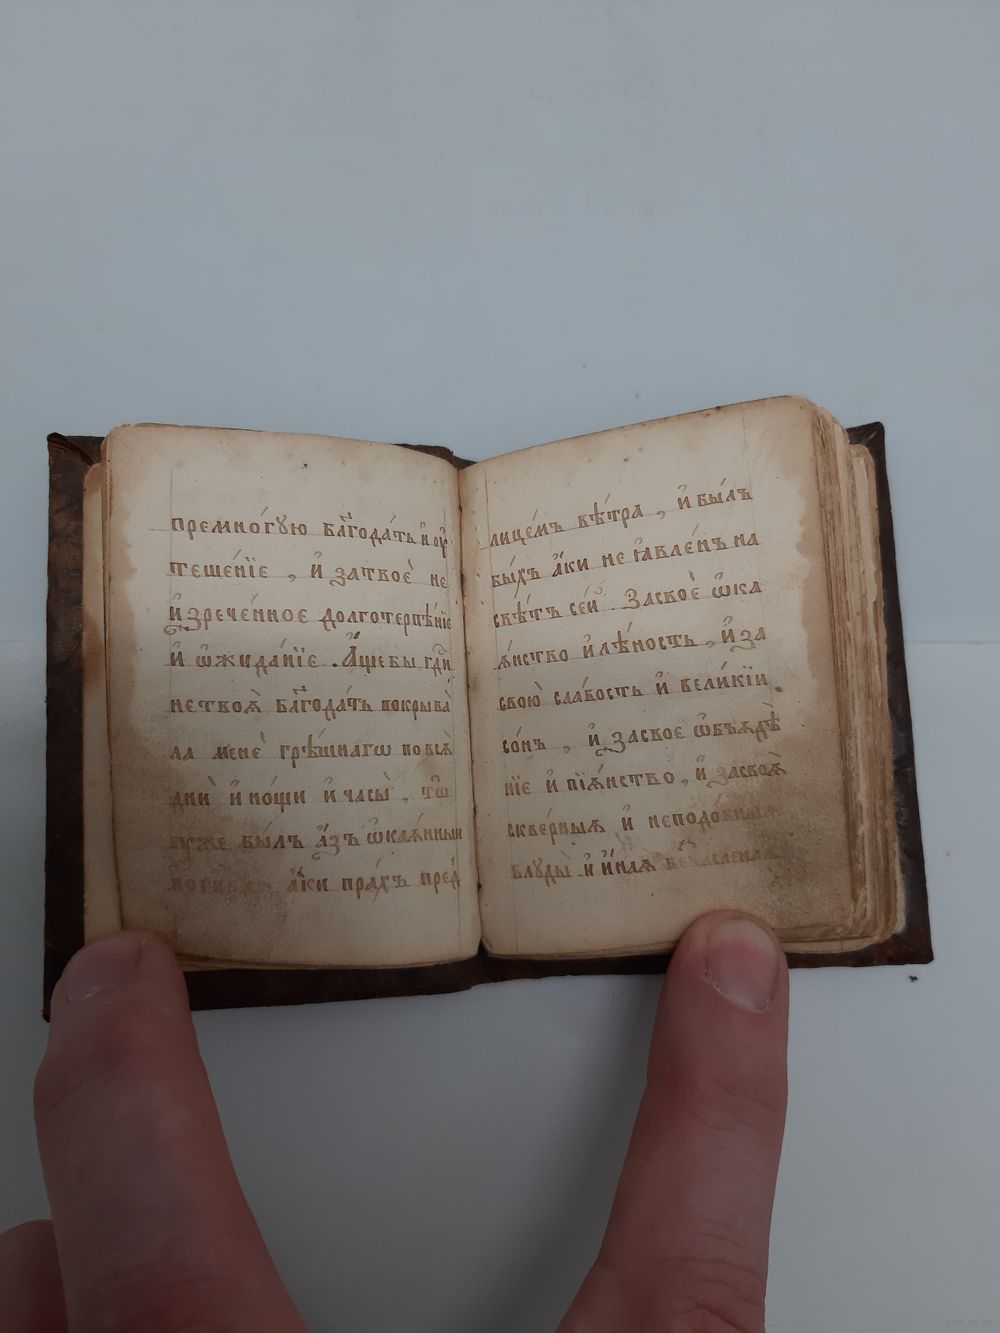 премно́гꙋю бл҃года́ть и҆ оу҆
теше́нїе , и҆ затвоѐ не
и҆зрече́нное долготерпѣ́нїе
и҆ ѡ҆жида́нїе . А҆ще бы гд҃и
не твоѧ̀ бл҃года́ть покрыва̀
ла менѐ грѣ́шнагѡ по всѧ̀
днѝ и҆ но́щи и҆ часы̀ , то̀
уже бы́лъ а҆́зъ ѡ҆каѧ́нныи
поги́блъ а҆́ки пра́хъ пред̾
лице́мъ вѣ́тра , и҆ бы́лъ
бы́хъ а҆́ки не ꙗ҆вле́нъ на
свѣ́тъ се́й . За своѐ ѡ҆ка
ѧ́нство и҆ лѣ́ность , и҆ за
свою̀ сла́бость и҆ вели́кїи
со́нъ , и҆ за свое ѡ҆б̾ѧде́
нїе и҆ пїѧ́нство , и҆ за своѧ̀
скве́рныѧ и҆ неподо́бныѧ
блуды̀ и҆ и҆́наѧ без̾чи́сленаѧ